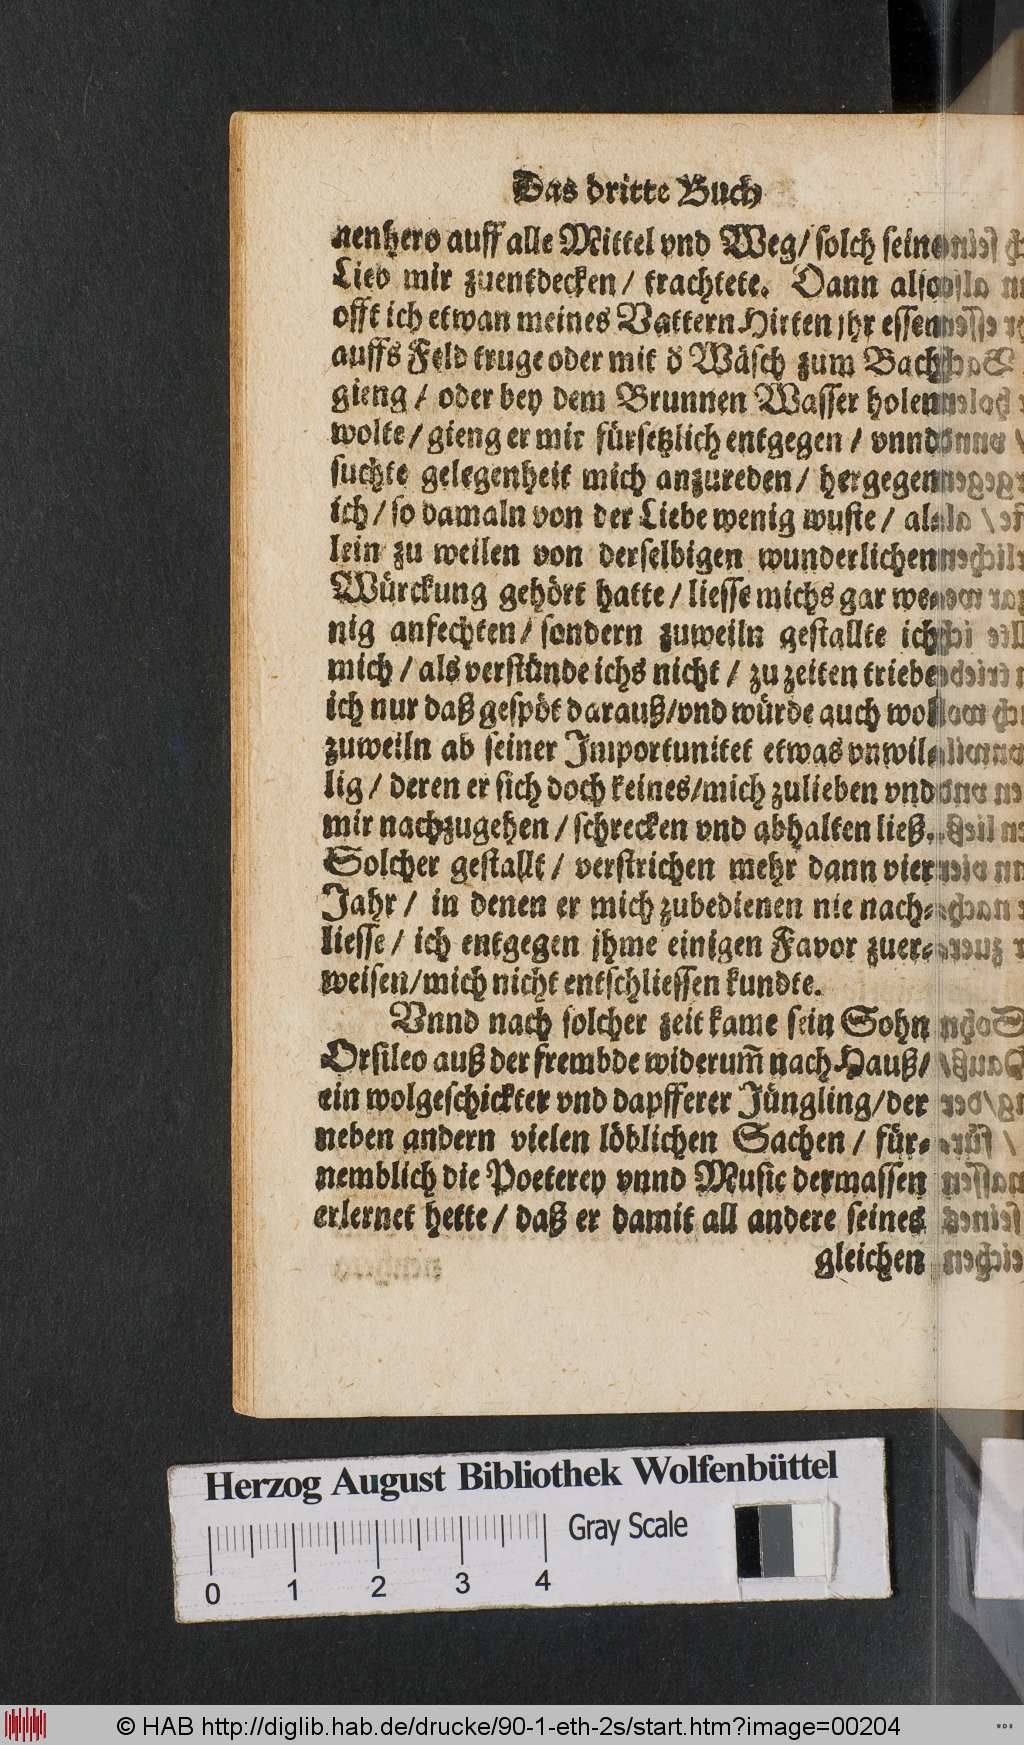 Das dritte Buch
nenhero auff alle Mittel vnd Weg/ solch seine
Lieb mir zuentdecken/ trachtete. Dann also
offt ich etwan meines Vattern Hirten jhr essen
auffs Feld truge oder mit d̄ Wäsch zum Bach
gieng/ oder bey dem Brunnen Wasser holen
wolte/ gieng er mir fürsetzlich entgegen/ vnnd
suchte gelegenheit mich anzureden/ hergegen
ich/ so damaln von der Liebe wenig wuste/ al-
lein zu weilen von derselbigen wunderlichen
Würckung gehört hatte/ liesse michs gar we-
nig anfechten/ sondern zuweiln gestallte ich
mich/ als verstünde ichs nicht/ zu zeiten triebe
ich nur daß gespöt darauß/ vnd würde auch wol
zuweiln ab seiner Importunitet etwas vnwil-
lig/ deren er sich doch keines/ mich zulieben vnd
mir nachzugehen/ schrecken vnd abhalten ließ.
Solcher gestallt/ verstrichen mehr dann vier
Jahr/ in denen er mich zubedienen nie nach-
liesse/ ich entgegen jhme einigen Favor zuer-
weisen/ mich nicht entschliessen kundte.
Vnnd nach solcher zeit kame sein Sohn
Orsileo auß der frembde widerum̄ nach Hauß/
ein wolgeschickter vnd dapfferer Jüngling/ der
neben andern vielen löblichen Sachen/ für-
nemblich die Poeterey vnnd Music dermassen
erlernet hette/ daß er damit all andere seines
gleichen
Herzog August Bibliothek Wolfenbüttel
Gray Scale
0 1 2 3 4
© HAB http://diglib.hab.de/drucke/90-1-eth-2s/start.htm?image=00204